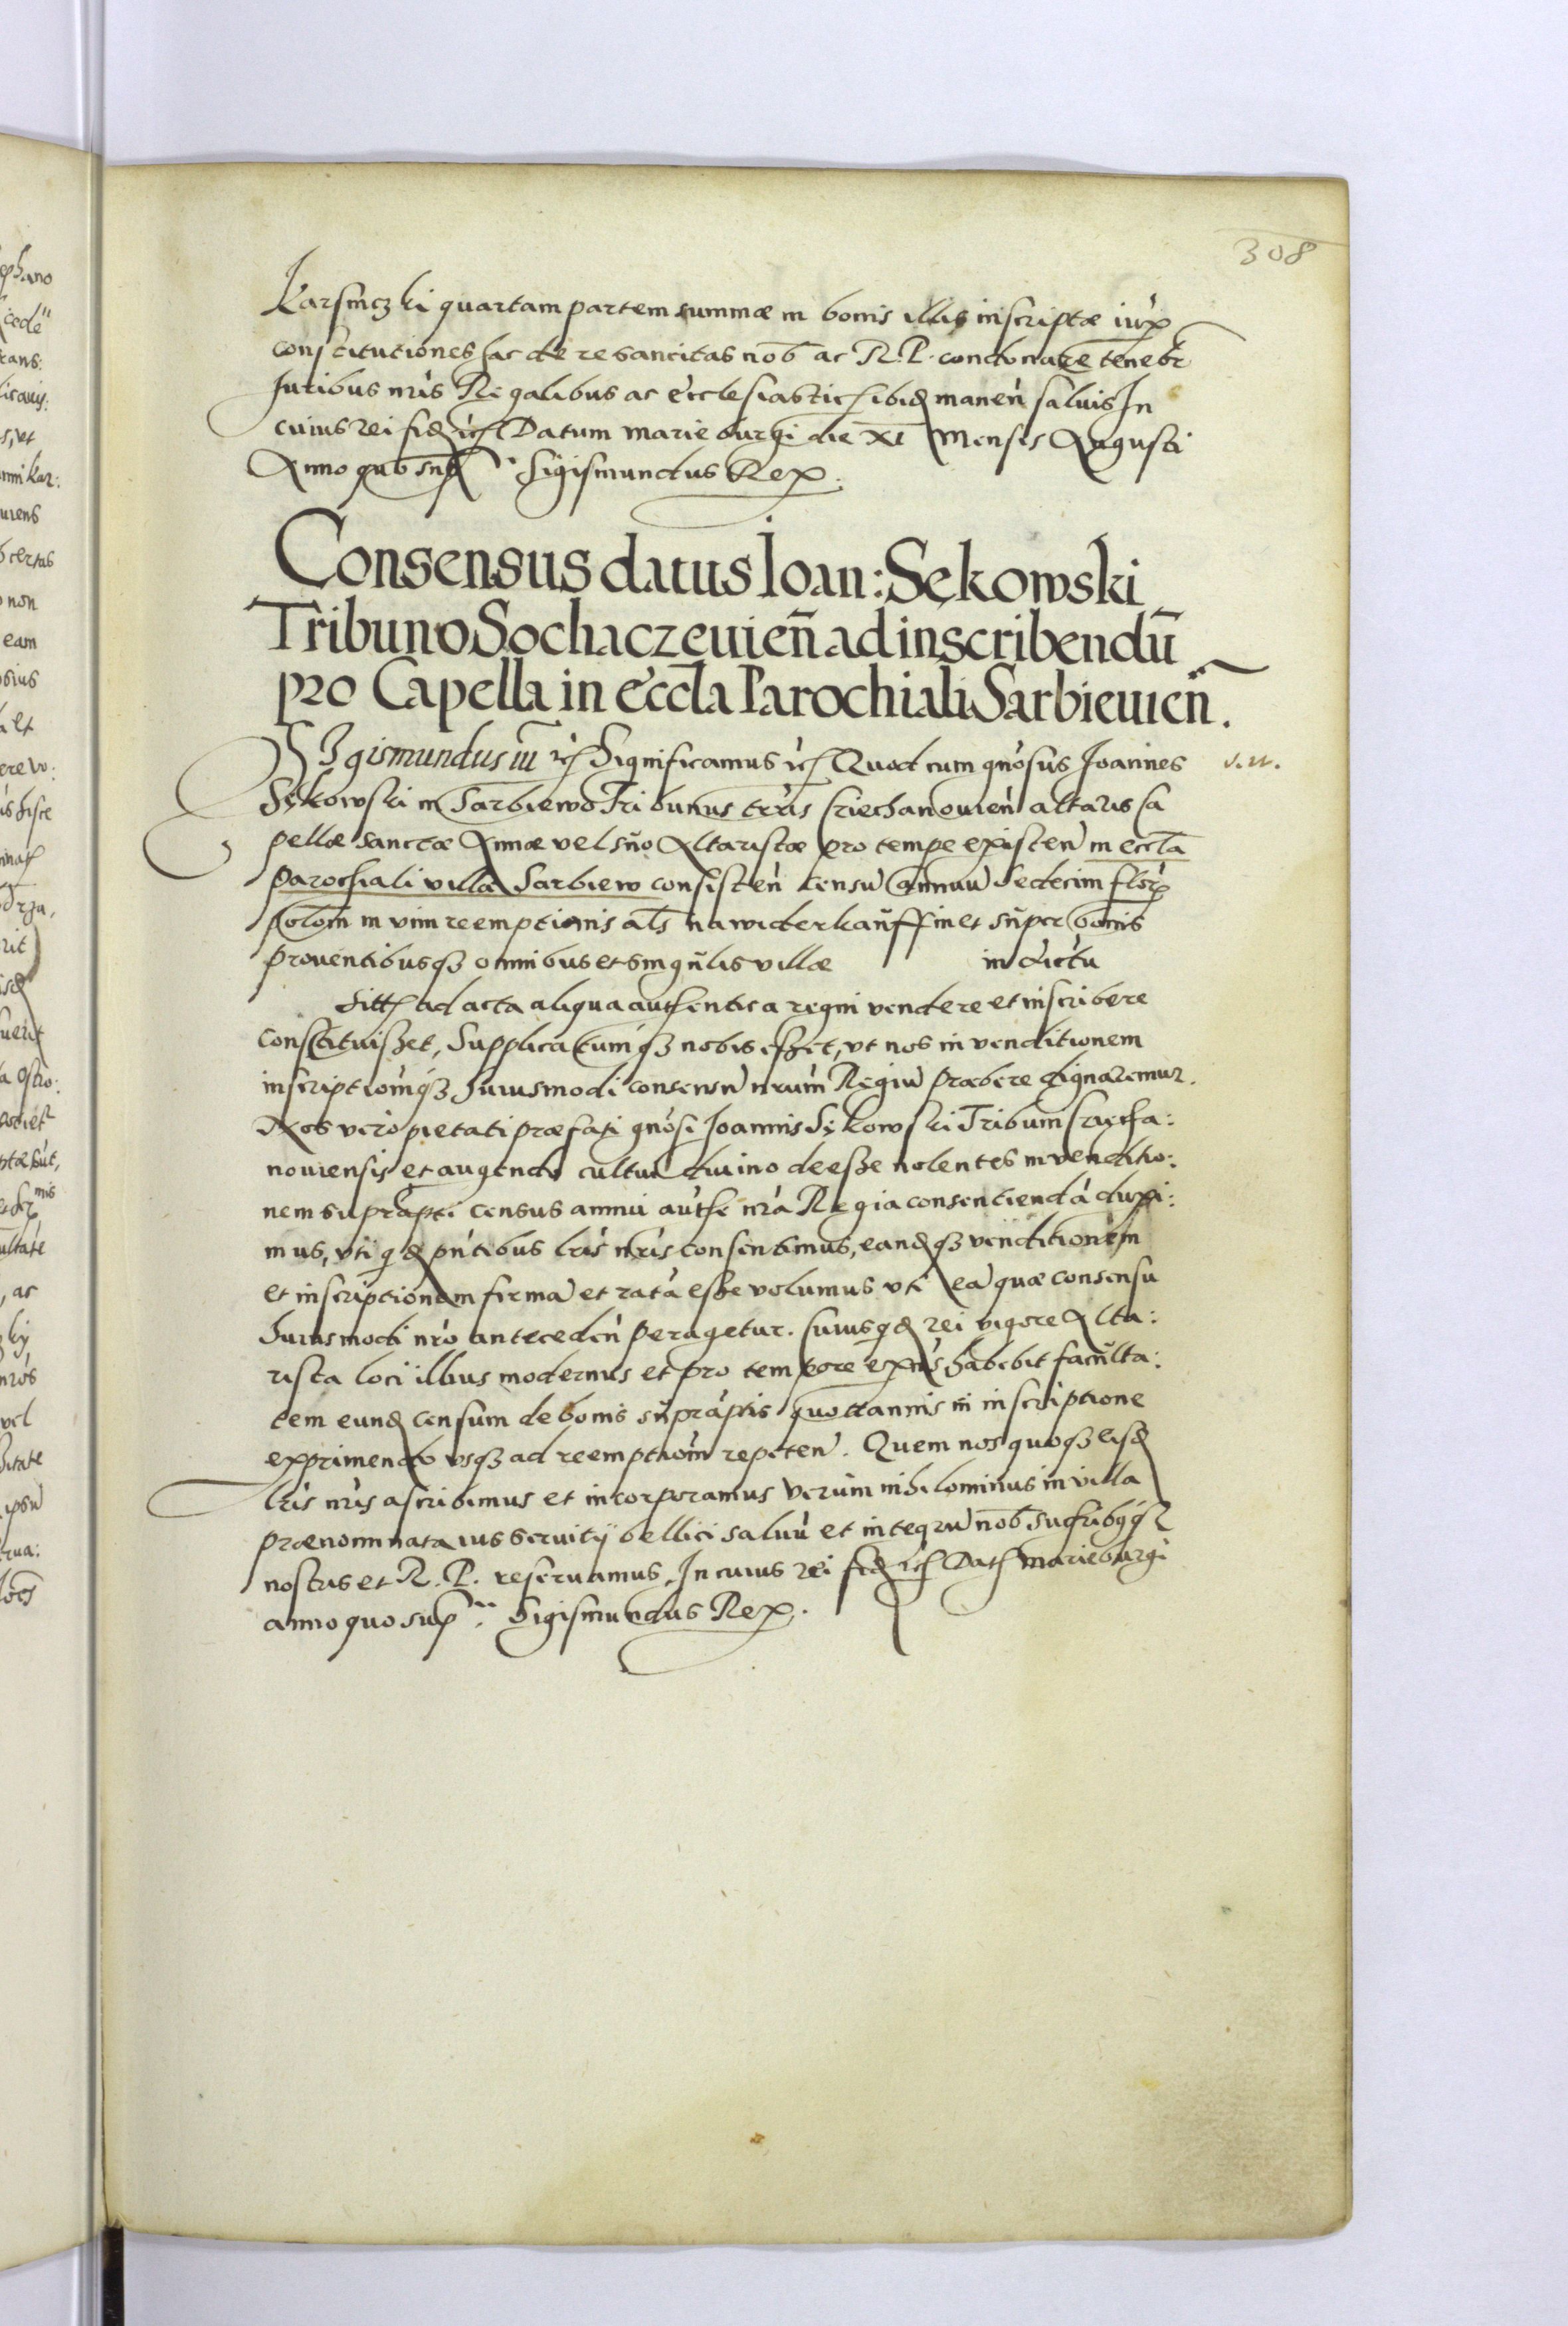 308
Karsniczki quartam partem summæ in bonis illis inscriptæ iux̃
constitutiones hac de re sancitas nob̃ ac R. P. condonare teneb̃r
Juribus nr̃is Regalibus ac Ecclesiastic̃ ibid̃ manen̄ saluis In
cuius rei fid̃ etc̃ Datum Marieburgi die XI Mensis Augusti
Anno quo sup̃ Sigismundus Rex.
Consensus datus Ioan: Sękowski
Tribuno Sochaczeuien̄ ad inscribendū
pro Capella in eccl̃a Parochiali Sarbieuien̄.
SIgismundus iii etc̃ Significamus etc̃ Quod cum gnõsus Joannes
s. n.
Sękowski in Sarbiewo Tribunus terr̃is Cziechanouien̄ altaris Ca
pellæ sanctæ Annæ vel suo Altaristæ pro temp̃e existen̄ in eccl̃a
Parochiali villa Sarbiew consisten̄ censū annuū Sedecim flor̃
polon̄ in vim reemptionis al̃s na widerkauff in et super bonis
prouentibusq3 omnibus et singulis villæ in dictu
Sitt̃ ad acta aliqua authentica regni vendere et inscribere
constituisset, Supplicatumq3 nobis esset, vt nos in venditionem
inscriptiom̃q3 huiusmodi consensū nr̃um Regiū præbere dignaremur.
Nos vero pietati præfati gnõsi Joannis Sękowski Tribuni Cziecha:
nouiensis et augendo cultui diuino deesse nolentes in venditio:
nem supráp̃ti census annui auth̃e nr̃a Regia consentiendā duxi:
mus, vti q̃d̃ pn̄tibus lr̃is nr̃is consentimus, eand̃q3 venditionem
et inscriptionem firmā et ratā esse volumus vti ea quæ consensu
huiusmodi nr̃o anteceden̄ peragetur. Cuius q̃d̃ rei vigore Alta:
rista loci illius modernus et pro tempore exñs habebit faculta:
tem eund̃ censum de bonis supráp̃tis quottannis in inscriptione
exprimendo vsq3 ad reemptiom̃ repeten̄. Quem nos quoq3 eisd̃
lr̃is nr̃is ascribimus et incorporamus verum nihilominus in villa
prænominata ius seruitij bellici saluū et integrū nob̃ succ̃ribq3
nostris et R. P. reseruamus. In cuius rei fid̃ etc̃ Dat̃ Marieburgi
anno quo sup̃. Sigismundus Rex.